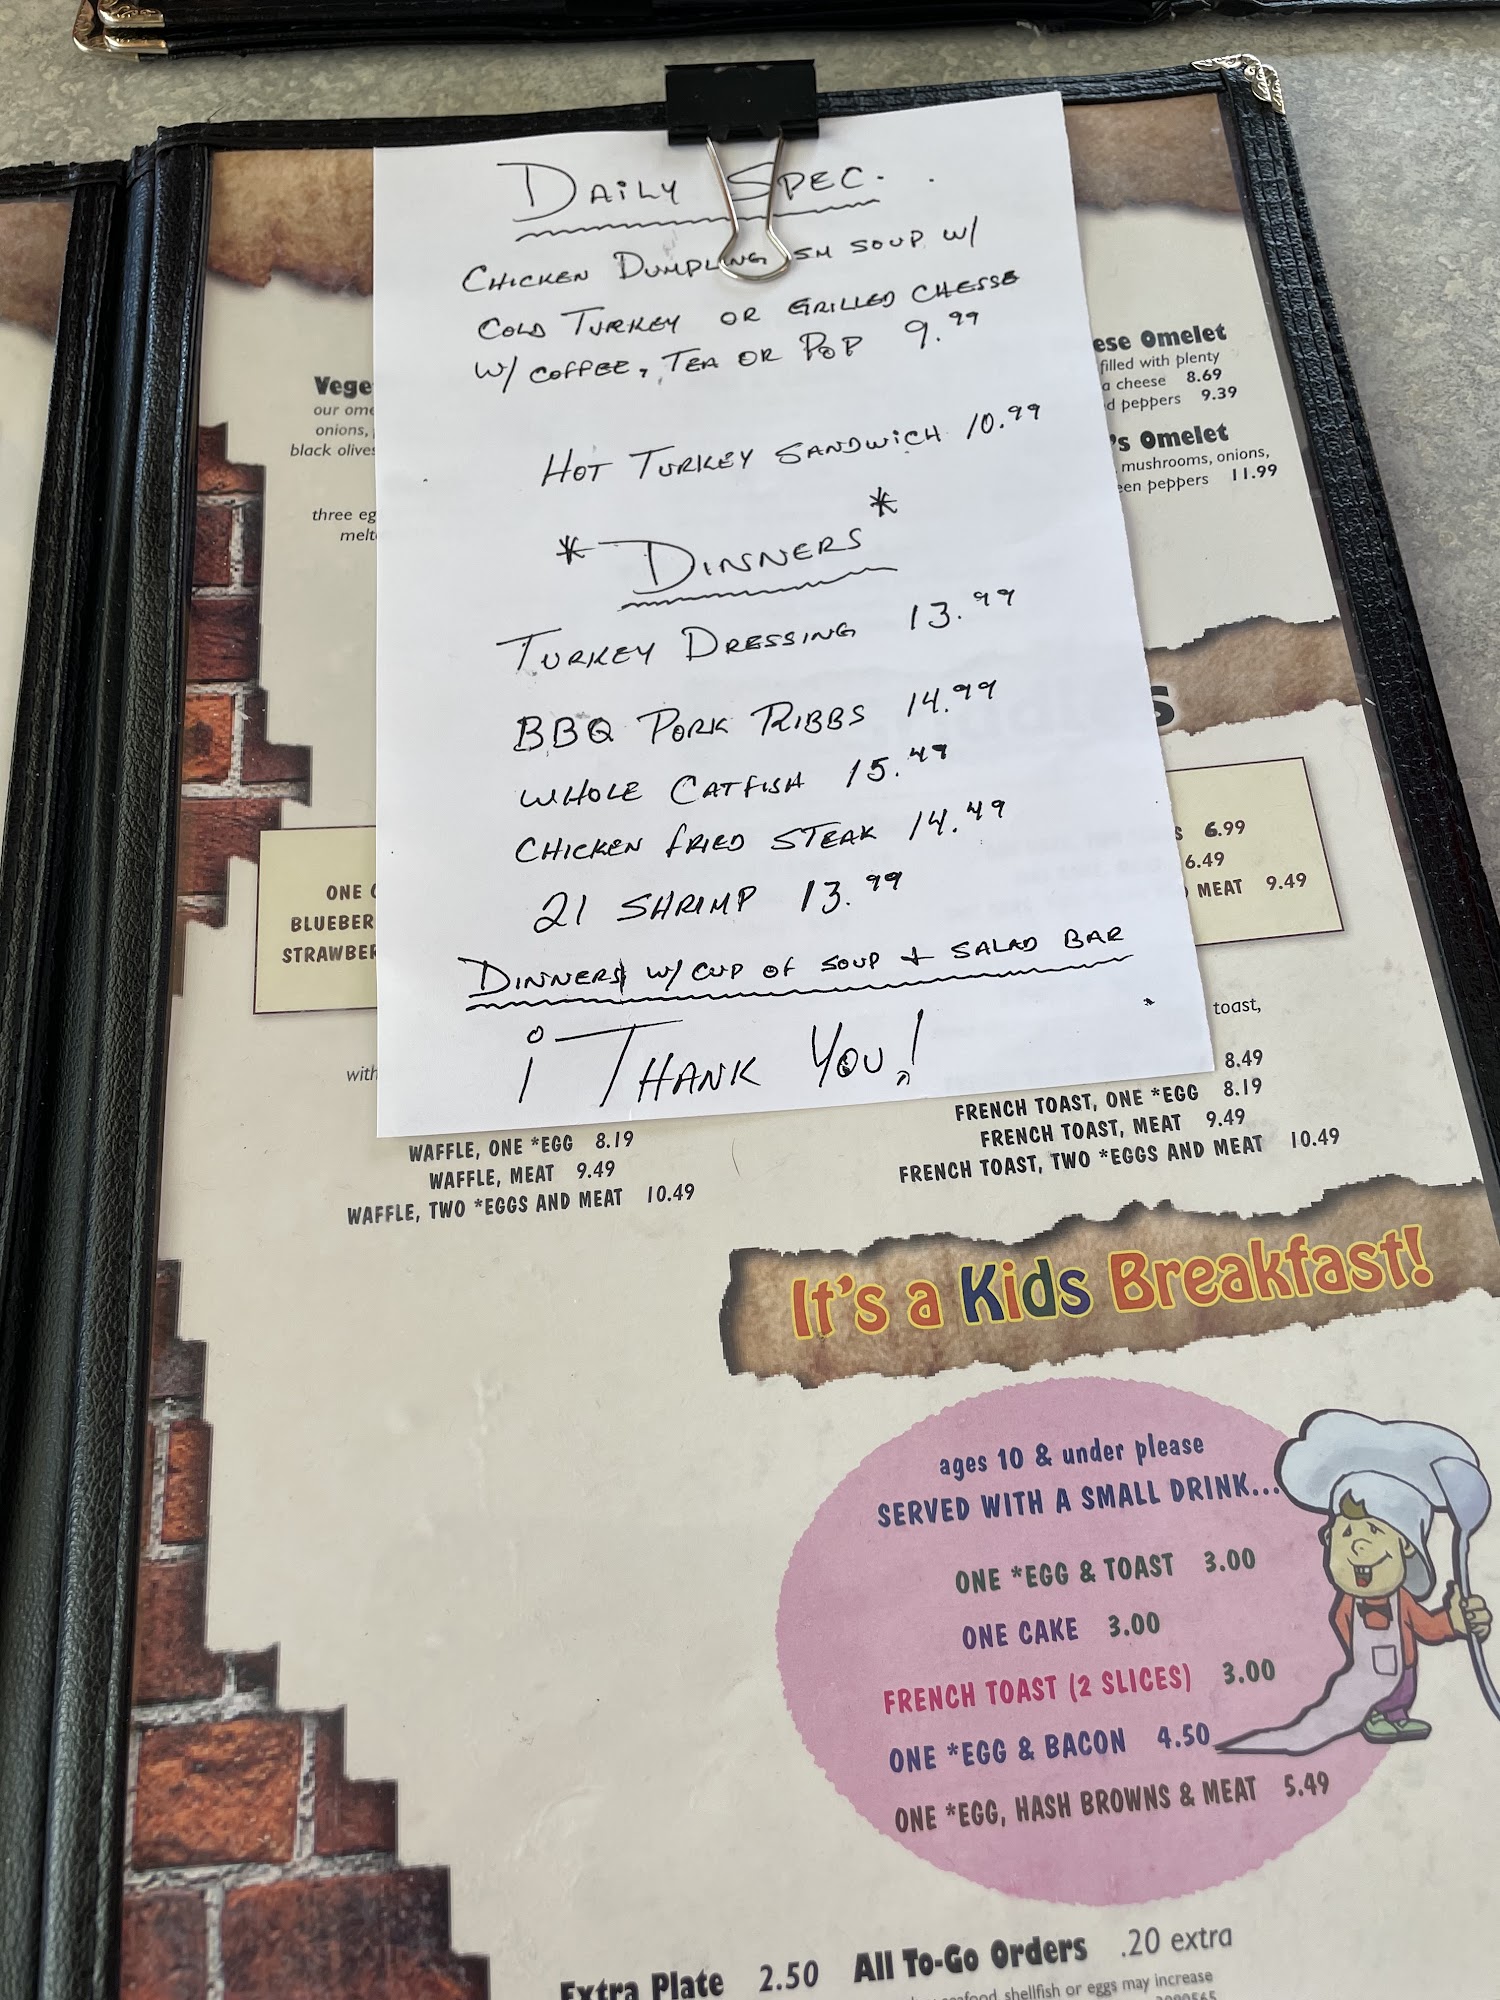 DAILY SPEC.
CHICKEN DUMPLING SM SOUP W/
COLD TURKEY OR GRILLED CHESSE
W/ COFFEE, TEA OR POP 9.99
HOT TURKEY SANDWICH 10.99
* DINNERS *
TURKEY DRESSING 13.99
BBQ PORK RIBBS 14.99
WHOLE CATFISH 15.49
CHICKEN FRIED STEAK 14.49
21 SHRIMP 13.99
DINNERS W/ CUP OF SOUP + SALAD BAR
¡ THANK YOU!
Vege
our ome
onions,
black olives
three eg
melt
ese Omelet
filled with plenty
a cheese 8.69
d peppers 9.39
's Omelet
mushrooms, onions,
een peppers 11.99
s
ONE
BLUEBER
STRAWBER
S 6.99
6.49
MEAT 9.49
with
WAFFLE, ONE *EGG 8.19
WAFFLE, MEAT 9.49
WAFFLE, TWO *EGGS AND MEAT 10.49
toast,
8.49
FRENCH TOAST, ONE *EGG 8.19
FRENCH TOAST, MEAT 9.49
FRENCH TOAST, TWO *EGGS AND MEAT 10.49
It's a Kids Breakfast!
ages 10 & under please
SERVED WITH A SMALL DRINK...
ONE *EGG & TOAST 3.00
ONE CAKE 3.00
FRENCH TOAST (2 SLICES) 3.00
ONE *EGG & BACON 4.50
ONE *EGG, HASH BROWNS & MEAT 5.49
Extra Plate 2.50 All To-Go Orders .20 extra
shellfish or eggs may increase